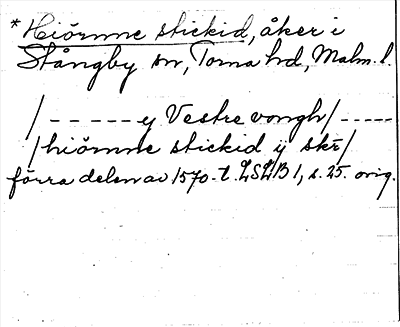 * Hiörnne stickid, åker i
Stångby sn, Torna hd, Malm. l.
/ - - - - - y Vestre vongh / - - - - -
/ hiömne stickid ÿ skr̄ /
förra delen av 1570-t. LSLB 1, s. 25. orig.